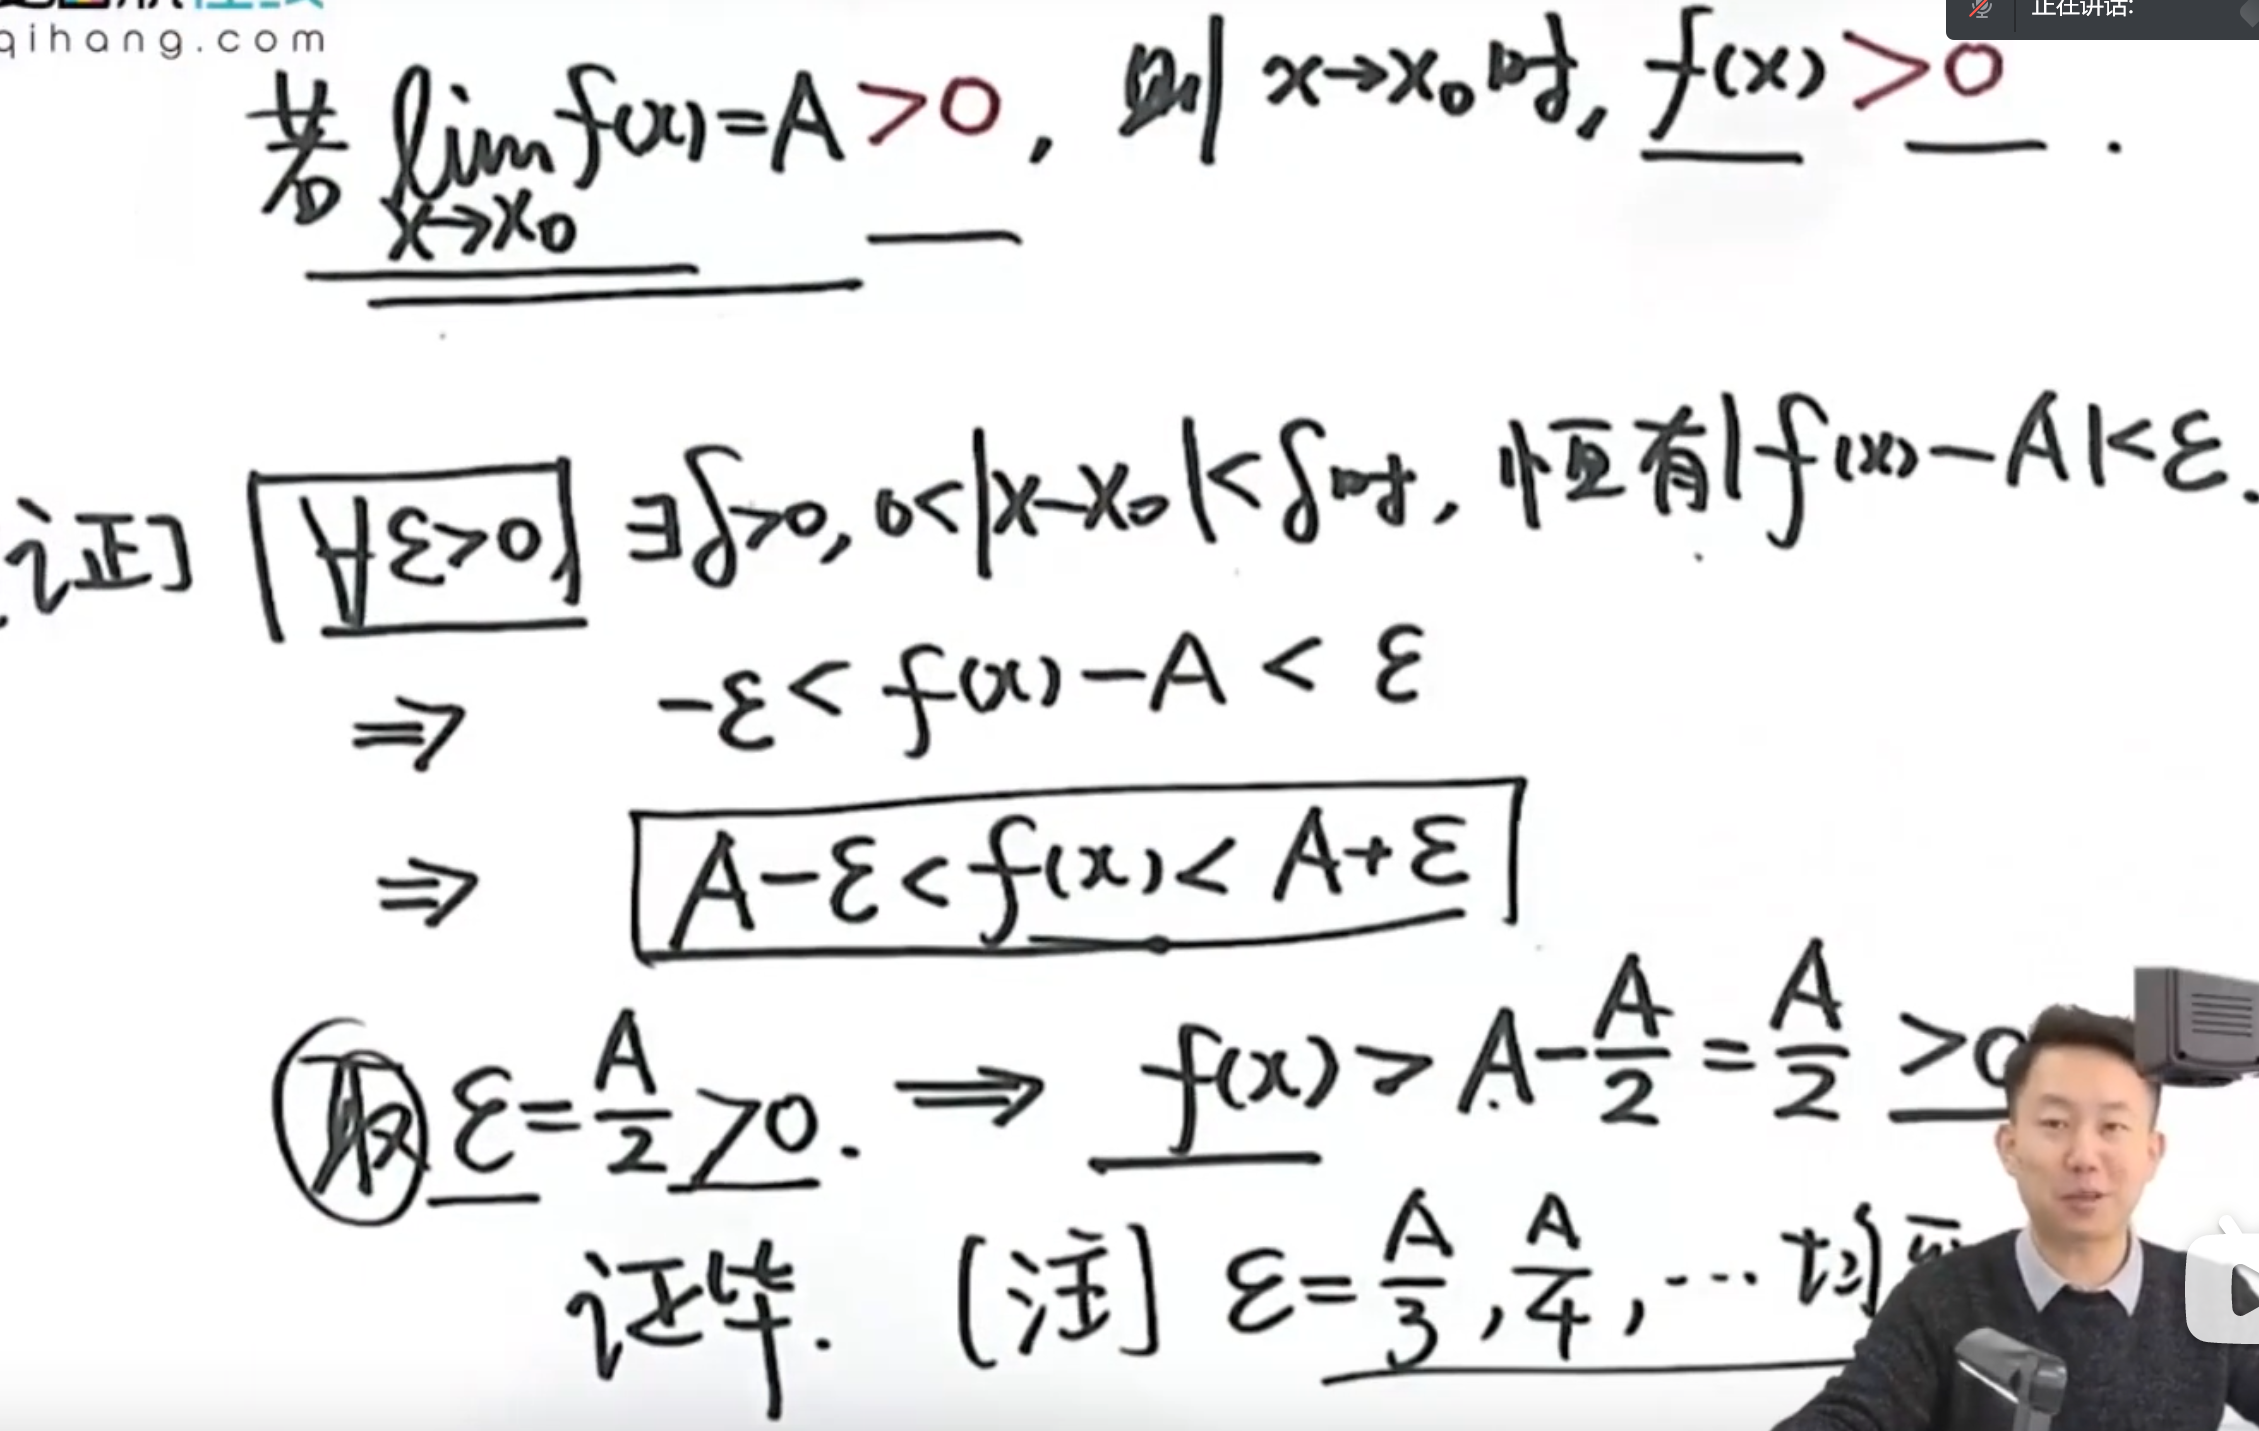 qihang.com
正在讲话:
若 lim f(x)=A>0, 则 x→x₀时, f(x)>0.
x→x₀
证] ∀ε>0, ∃δ>0, 0<|x-x₀|<δ时, 恒有|f(x)-A|<ε.
⇒ -ε<f(x)-A<ε
⇒ A-ε<f(x)<A+ε
取 ε=A/2>0. ⇒ f(x)>A-A/2=A/2>0
证毕. [注] ε=A/3, A/4, … 均